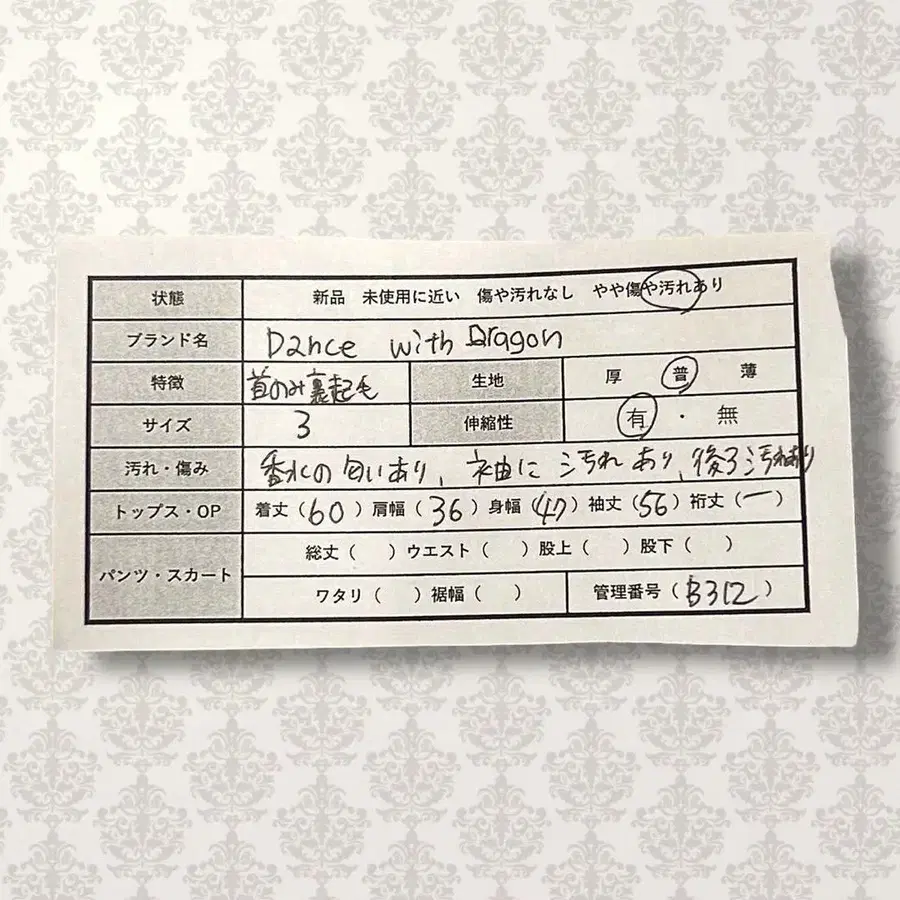 状態 新品 未使用に近い 傷や汚れなし やや傷や汚れあり
ブランド名 Dance with Dragon
特徴 首のみ裏起毛 生地 厚 普 薄
サイズ 3 伸縮性 有 ・ 無
汚れ・傷み 香水の匂いあり、袖に汚れあり、後ろ汚れあり
トップス・OP 着丈(60)肩幅(36)身幅(47)袖丈(56)裄丈(ー)
パンツ・スカート 総丈( )ウエスト( )股上( )股下( )
ワタリ( )裾幅( ) 管理番号(B312)